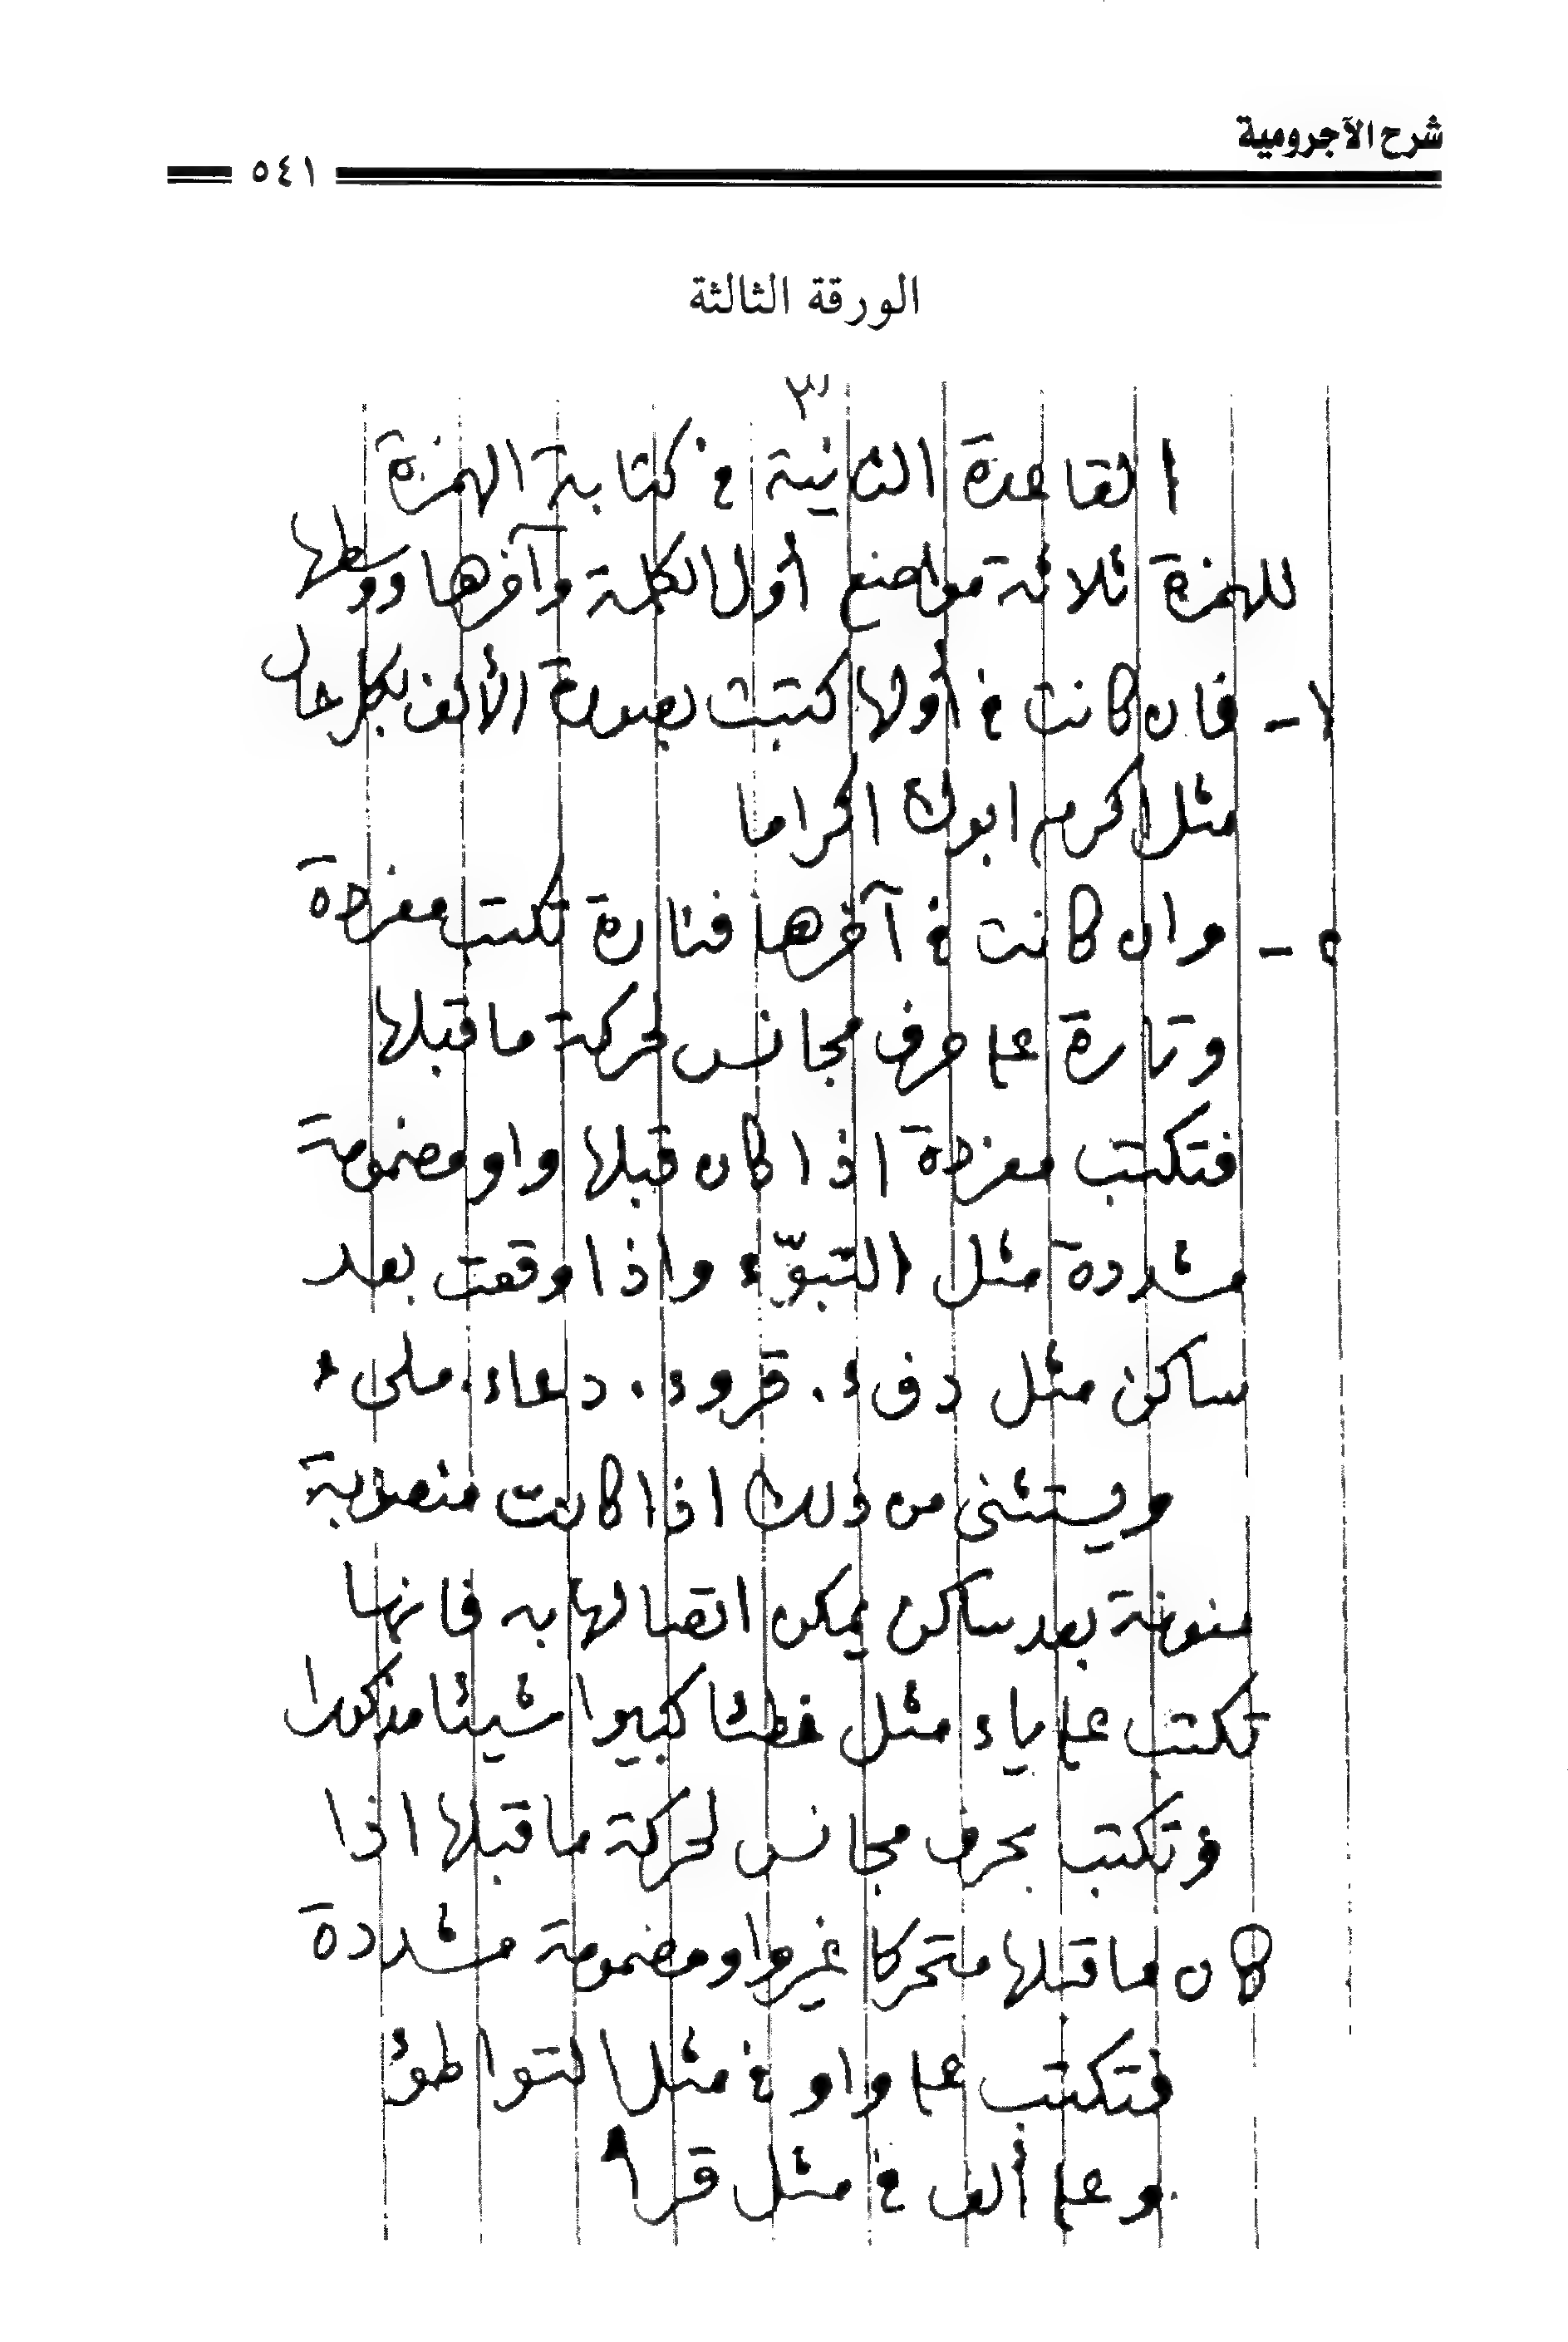 شرح الآجرومية
٥٤١
الورقة الثالثة
٣
القاعدة الثانية في كتابة الهمزة
للهمزة ثلاثة مواضع أول الكلمة وآخرها ووسطها
١- فان كانت في أولها كتبت بصورة الألف بكل حال
مثل اكرم ابوك اكراما
وان كانت في آخرها فتارة تكتب مفردة
وتارة على حرف مجانس لحركة ما قبلها
فتكتب مفردة اذا كان قبلها واو مضمومة
مشددة مثل التبوّء واذا وقعت بعد
ساكن مثل دفء . قروء . دعاء . ملىء
ويستثنى من ذلك اذا كانت منصوبة
منونة بعد ساكن يمكن اتصالها به فانها
تكتب على ياء مثل خطئا كبيرا شيئا مذكورا
وتكتب بحرف مجانس لحركة ما قبلها اذا
كان ما قبلها متحركا غير واو مضمومة مشددة
فتكتب على واو في مثل التواطؤ
وعلى ألف في مثل قرأ